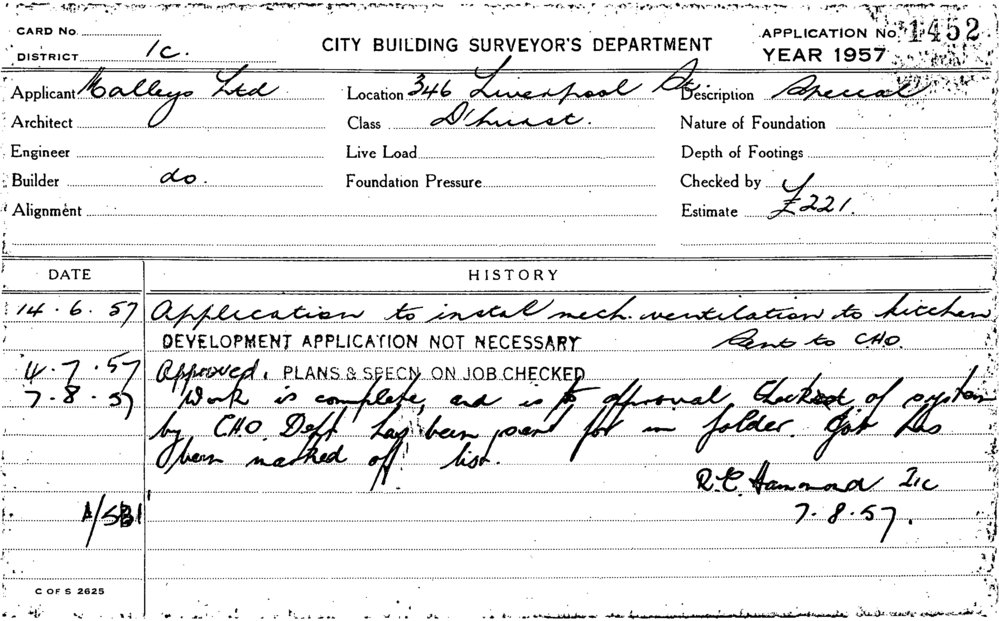 CARD No.
DISTRICT 1c.
CITY BUILDING SURVEYOR'S DEPARTMENT
APPLICATION No. 1452
YEAR 1957
Applicant Malleys Ltd
Location 346 Liverpool St.
Description Special
Architect
Class D'hurst.
Nature of Foundation
Engineer
Live Load
Depth of Footings
Builder do.
Foundation Pressure
Checked by
Alignment
Estimate £221.
DATE HISTORY
14.6.57 Application to instal mech. ventilation to kitchen
DEVELOPMENT APPLICATION NOT NECESSARY Sent to CHO.
4.7.57 Approved. PLANS & SPECN. ON JOB CHECKED
7.8.57 Work is complete, and is to approval Checked of system
by C.H.O. Dept has been sent for in folder. Job has
been marked off list.
R.C. Hammond 1c
7.8.57.
A/5B1
C OF S 2625